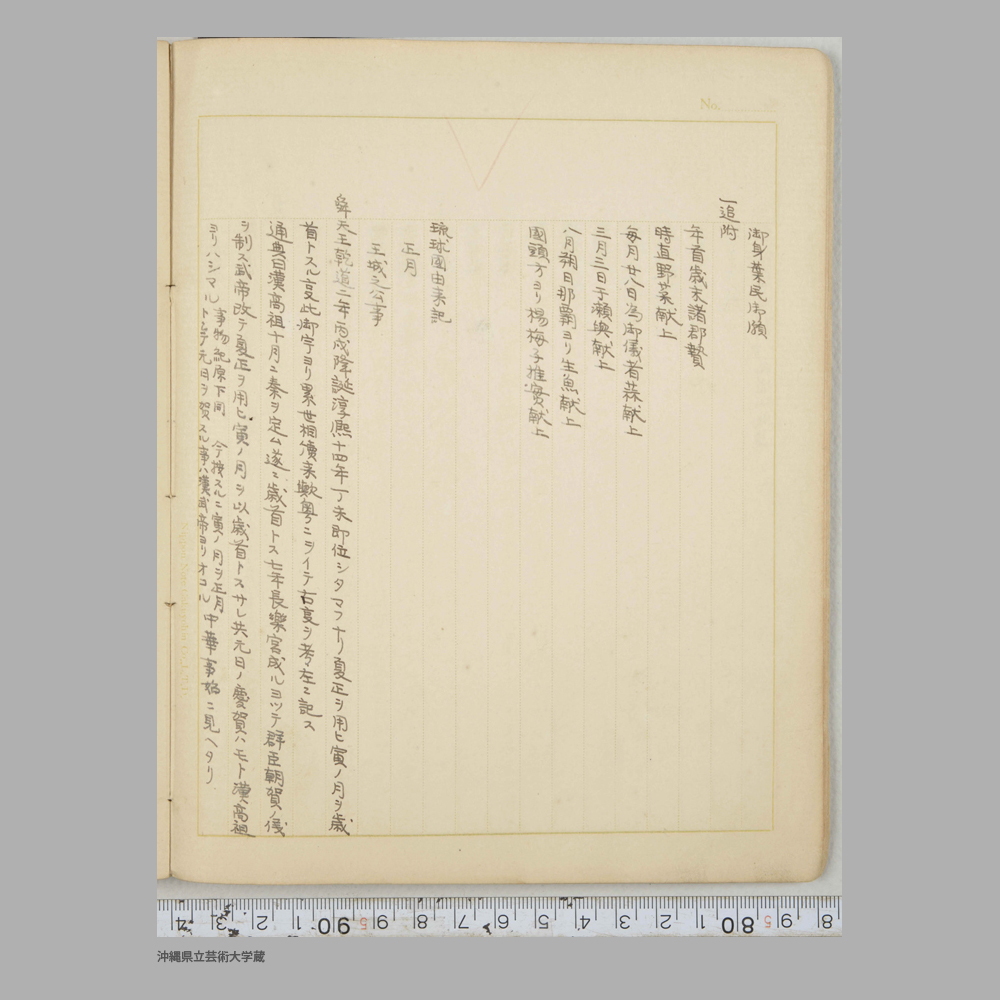 No.
御身葉民御願
一追附
年首歳末諸郡贄
時直野菜献上
毎月廿八日為御儀者蒜献上
三月三日子瀬與献上
八月朔日那覇ヨリ生魚献上
國頭方ヨリ楊梅子推實献上
琉球國由来記
正月
王城之公事
舜天王乾道二年丙戌降誕淳熈十四年丁未即位シタマフナリ夏正ヲ用ヒ寅ノ月ヲ歳
首トスル亊此御宇ヨリ累世相傳来歟粤ニヲイテ古亊ヲ考左ニ記ス
通典曰漢高祖十月ニ秦ヲ定ム遂ニ歳首トス七年長樂宮成ルヨツテ群臣朝賀ノ儀
ヲ制ス武帝改テ夏正ヲ用ヒ寅ノ月ヲ以歳首トスサレ共元日ノ慶賀ハモト漢高祖
ヨリハジマルト 事物紀原下同 今按スルニ寅ノ月ヲ正月
ト号元日ヲ賀スル事ハ漢武帝ヨリオコル 中華事始ニ見ヘタリ
4 3 2 1 90 9 8 7 6 5 4 3 2 1 80 9 8
沖縄県立芸術大学蔵